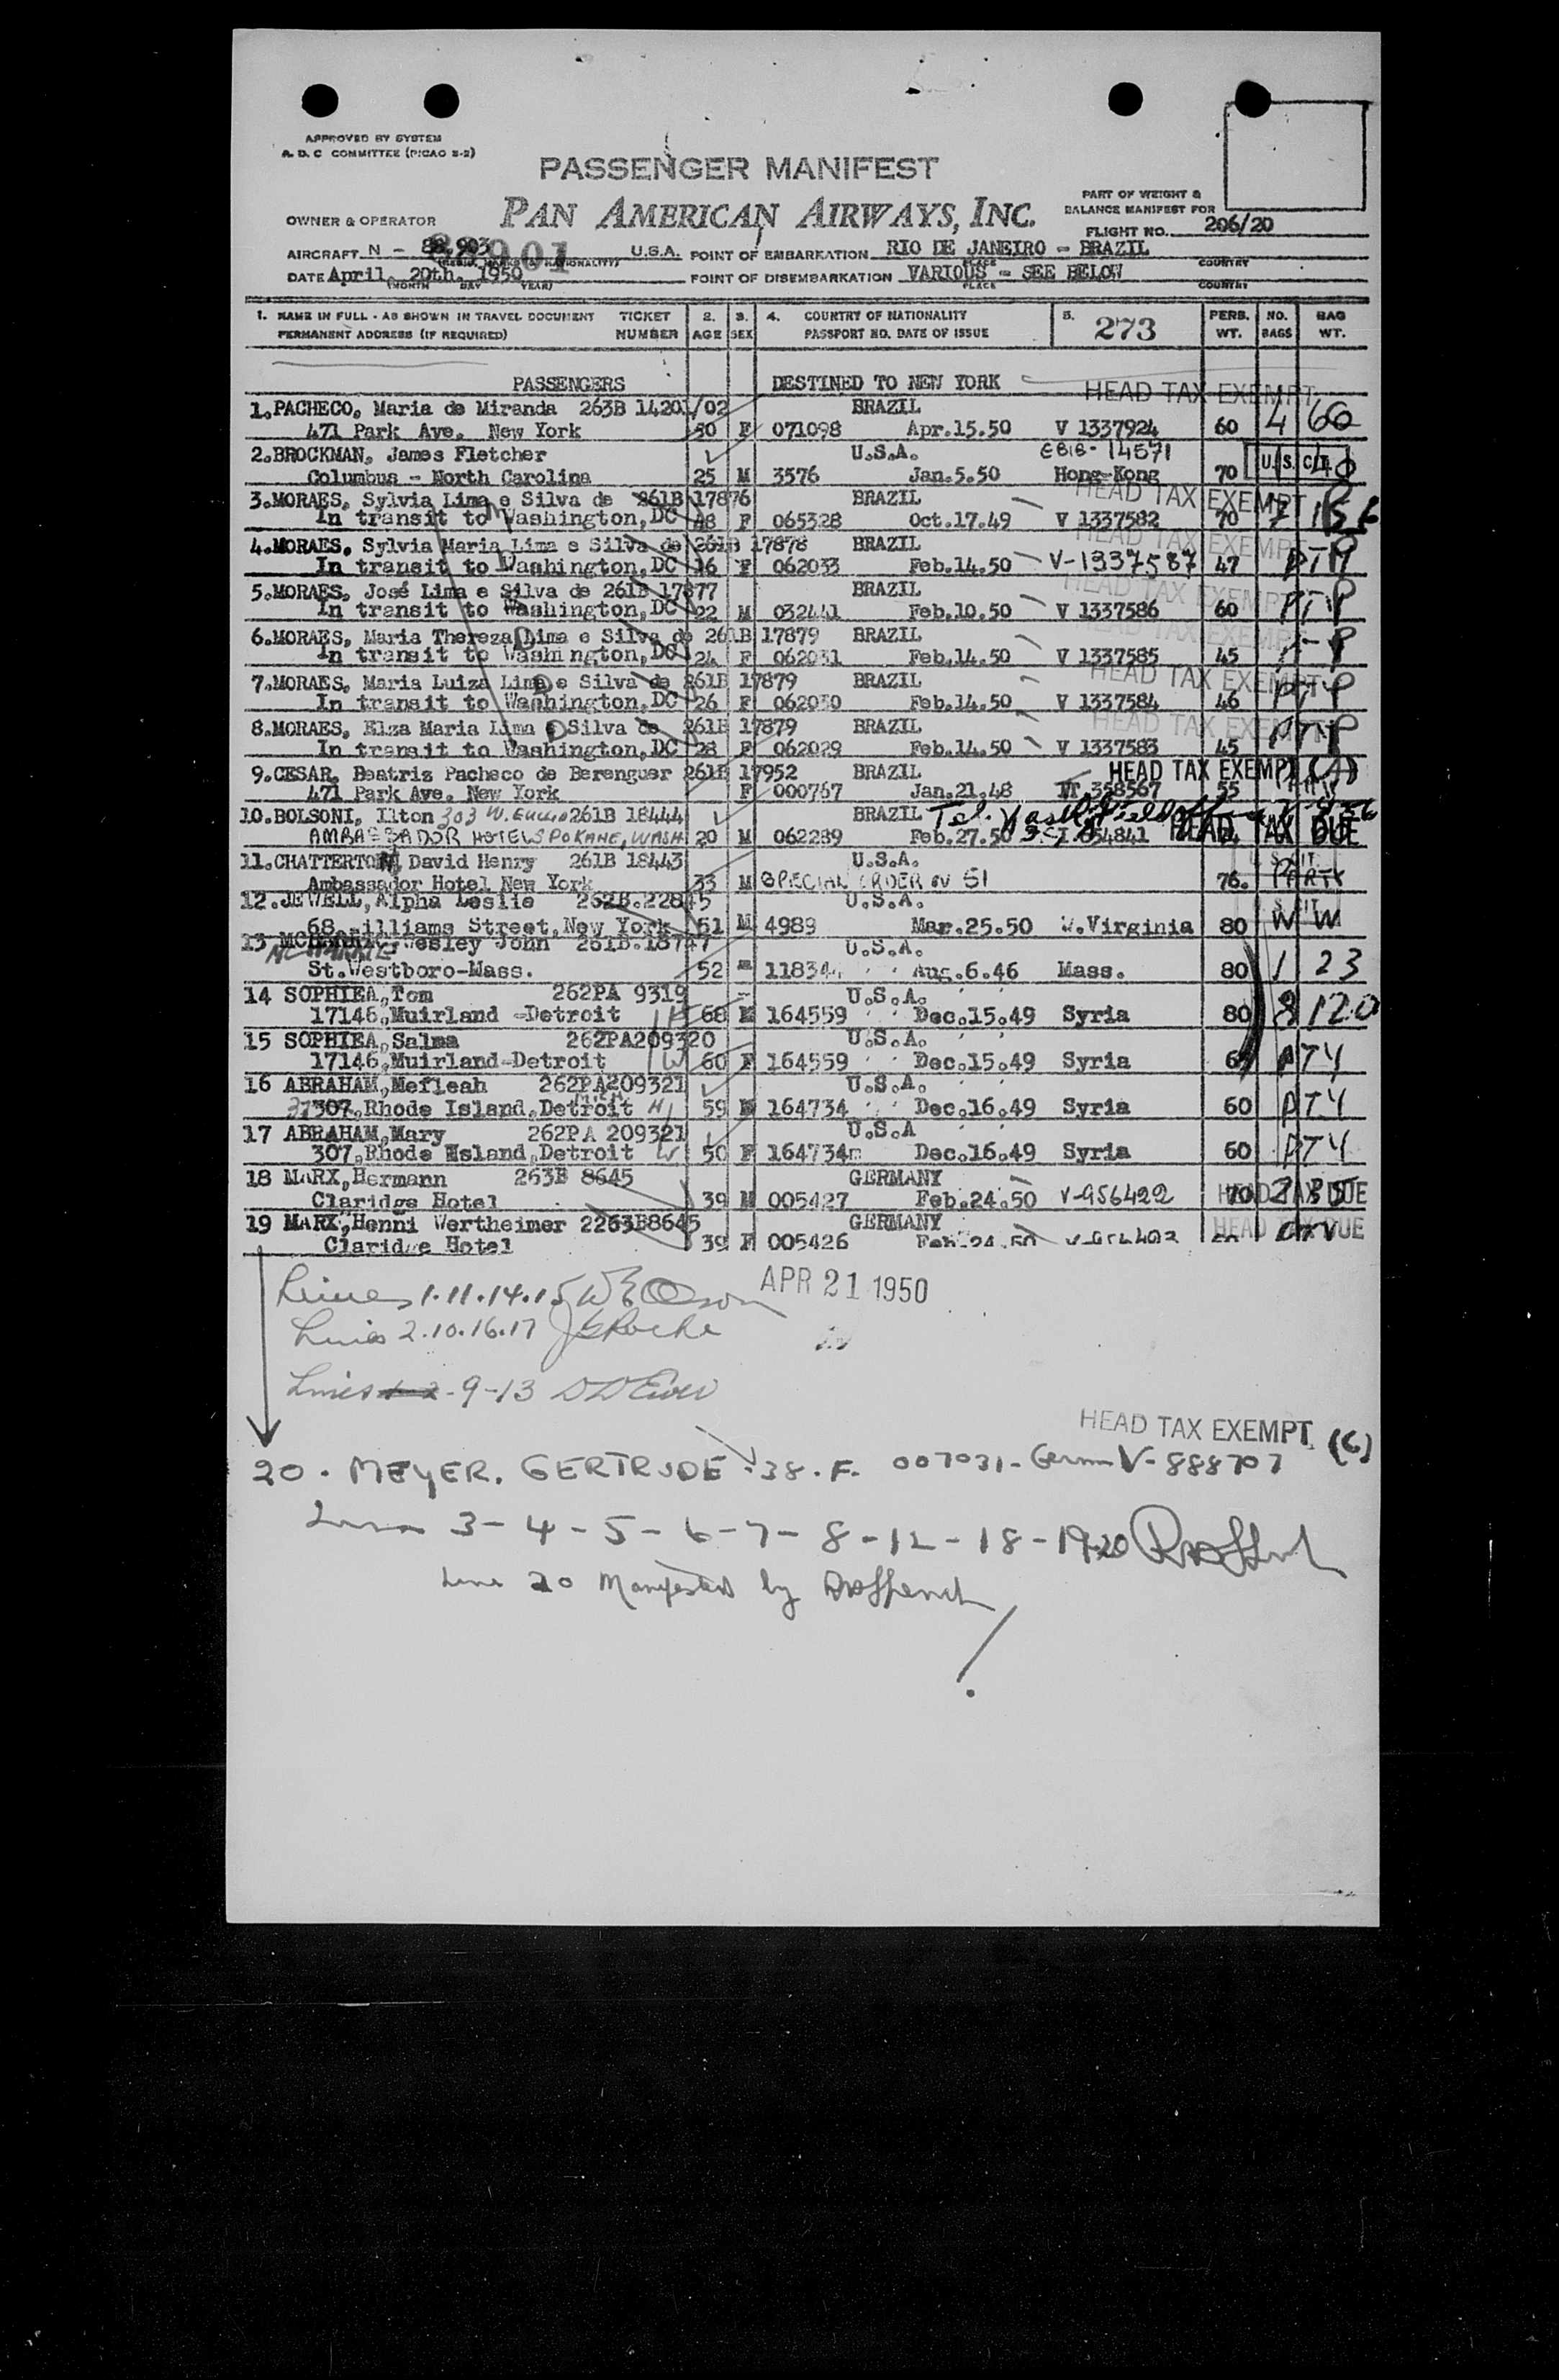 APPROVED BY SYSTEM
A. D. C COMMITTEE (PICAO 2-2)
PASSENGER MANIFEST
PAN AMERICAN AIRWAYS, INC.
PART OF WEIGHT &
BALANCE MANIFEST FOR
FLIGHT NO. 206/20
OWNER & OPERATOR
AIRCRAFT N - 88,903 U.S.A. POINT OF EMBARKATION RIO DE JANEIRO - BRAZIL
PLACE COUNTRY
DATE April. 20th. 1950 POINT OF DISEMBARKATION VARIOUS - SEE BELOW
(MONTH DAY YEAR) PLACE COUNTRY
1. NAME IN FULL - AS SHOWN IN TRAVEL DOCUMENT TICKET 2. 3. 4. COUNTRY OF NATIONALITY 5. 273 PERS. NO. BAG
PERMANENT ADDRESS (IF REQUIRED) NUMBER AGE SEX PASSPORT NO. DATE OF ISSUE WT. BAGS WT.
PASSENGERS DESTINED TO NEW YORK HEAD TAX EXEMPT
1.PACHECO, Maria de Miranda 263B 14201/02 BRAZIL
471 Park Ave. New York 50 F 071098 Apr.15.50 V 1337924 60 4 60
2.BROCKMAN, James Fletcher U.S.A. 14571
Columbus - North Carolina 25 M 3576 Jan.5.50 Hong-Kong 70 U.S. CIT.
3.MORAES, Sylvia Lima e Silva de 261B 17876 BRAZIL HEAD TAX EXEMPT
In transit to Washington, DC 48 F 065328 Oct.17.49 V 1337582 70
4.MORAES, Sylvia Maria Lima e Silva de 261B 17878 BRAZIL HEAD TAX EXEMPT
In transit to Washington, DC 16 F 062033 Feb.14.50 V-1337587 47 PTY
5.MORAES, José Lima e Silva de 261B 17877 BRAZIL HEAD TAX EXEMPT
In transit to Washington, DC 22 M 032441 Feb.10.50 V 1337586 60 PTY
6.MORAES, Maria Thereza Lima e Silva de 261B 17879 BRAZIL HEAD TAX EXEMPT
In transit to Washington, DC 24 F 062031 Feb.14.50 V 1337585 45
7.MORAES, Maria Luiza Lima e Silva de 261B 17879 BRAZIL HEAD TAX EXEMPT
In transit to Washington, DC 26 F 062030 Feb.14.50 V 1337584 46 PTY
8.MORAES, Elza Maria Lima e Silva de 261B 17879 BRAZIL HEAD TAX EXEMPT
In transit to Washington, DC 28 F 062029 Feb.14.50 V 1337583 45 PTY
9.CESAR, Beatriz Pacheco de Berenguer 261B 17952 BRAZIL HEAD TAX EXEMPT (A)
471 Park Ave. New York F 000767 Jan.21.48 358567 55
10.BOLSONI, Ilton 303 W. 261B 18444 BRAZIL
AMBASSADOR HOTEL SPOKANE, WASH 20 M 062289 Feb.27.50 HEAD TAX DUE
11.CHATTERTON, David Henry 261B 18443 U.S.A.
Ambassador Hotel New York 33 M SPECIAL ORDER N 51 76. PARTY
12.JEWELL, Alpha Leslie 262B.22845 U.S.A.
68, Williams Street, New York 51 M 4989 Mar.25.50 W.Virginia 80 W W
13 Wesley John 261B.18747 U.S.A.
St.Westboro-Mass. 52 m 11834 Aug.6.46 Mass. 80 1 23
14 SOPHIEA, Tom 262PA 9319 U.S.A.
17146, Muirland -Detroit H 68 M 164559 Dec.15.49 Syria 80 8 120
15 SOPHIEA, Salma 262PA209320 U.S.A.
17146, Muirland-Detroit W 60 F 164559 Dec.15.49 Syria PTY
16 ABRAHAM, Mefleah 262PA209321 U.S.A.
307, Rhode Island, Detroit H 59 M 164734 Dec.16.49 Syria 60 PTY
17 ABRAHAM, Mary 262PA 209321 U.S.A
307, Rhode Island, Detroit W 50 F 164734 Dec.16.49 Syria 60 PTY
18 MARX, Hermann 263B 8645 GERMANY
Claridge Hotel 39 M 005427 Feb.24.50 V-956422 70 HEAD TAX DUE
19 MARX, Henni Wertheimer 2263B8645 GERMANY
Claridge Hotel 39 F 005426 Feb.24.50 HEAD TAX DUE
APR 21 1950
Lines 1.11.14.15
Lines 2.10.16.17
Lines 9-13
HEAD TAX EXEMPT (C)
20. MEYER. GERTRUDE 38. F. 007031 - German V-888707
Lines 3-4-5-6-7-8-12-18-19-20
Line 20 Manifested by